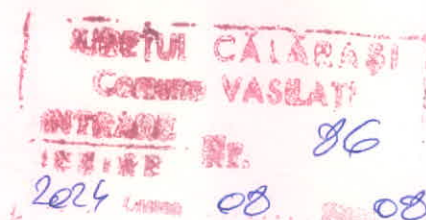 JUDEȚUL CĂLĂRAȘI
Comuna VASILAȚI
INTRARE
IEȘIRE Nr. 86
2024 Luna 08 08